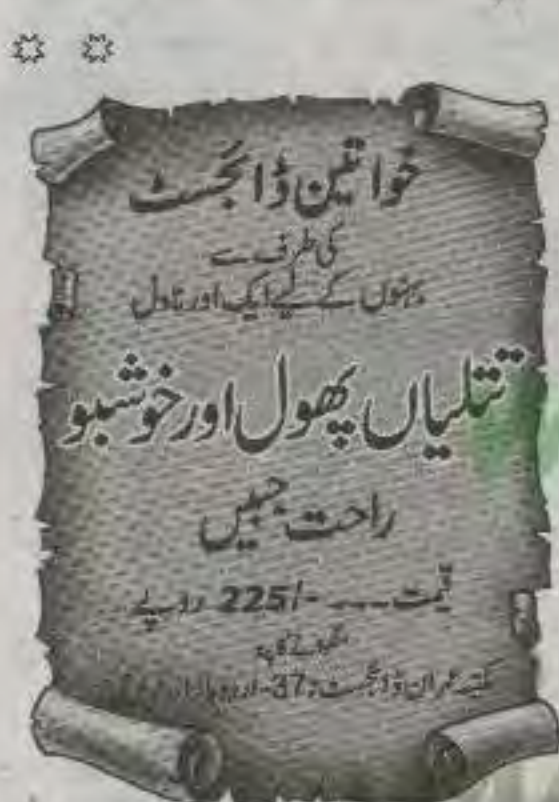 خواتین ڈائجسٹ
کی طرف سے
بہنوں کے لیے ایک اور ناول
تتلیاں پھول اور خوشبو
راحت جبیں
قیمت ---- -/225 روپے
منگوانے کا پتہ
مکتبہ عمران ڈائجسٹ: 37- اردو بازار